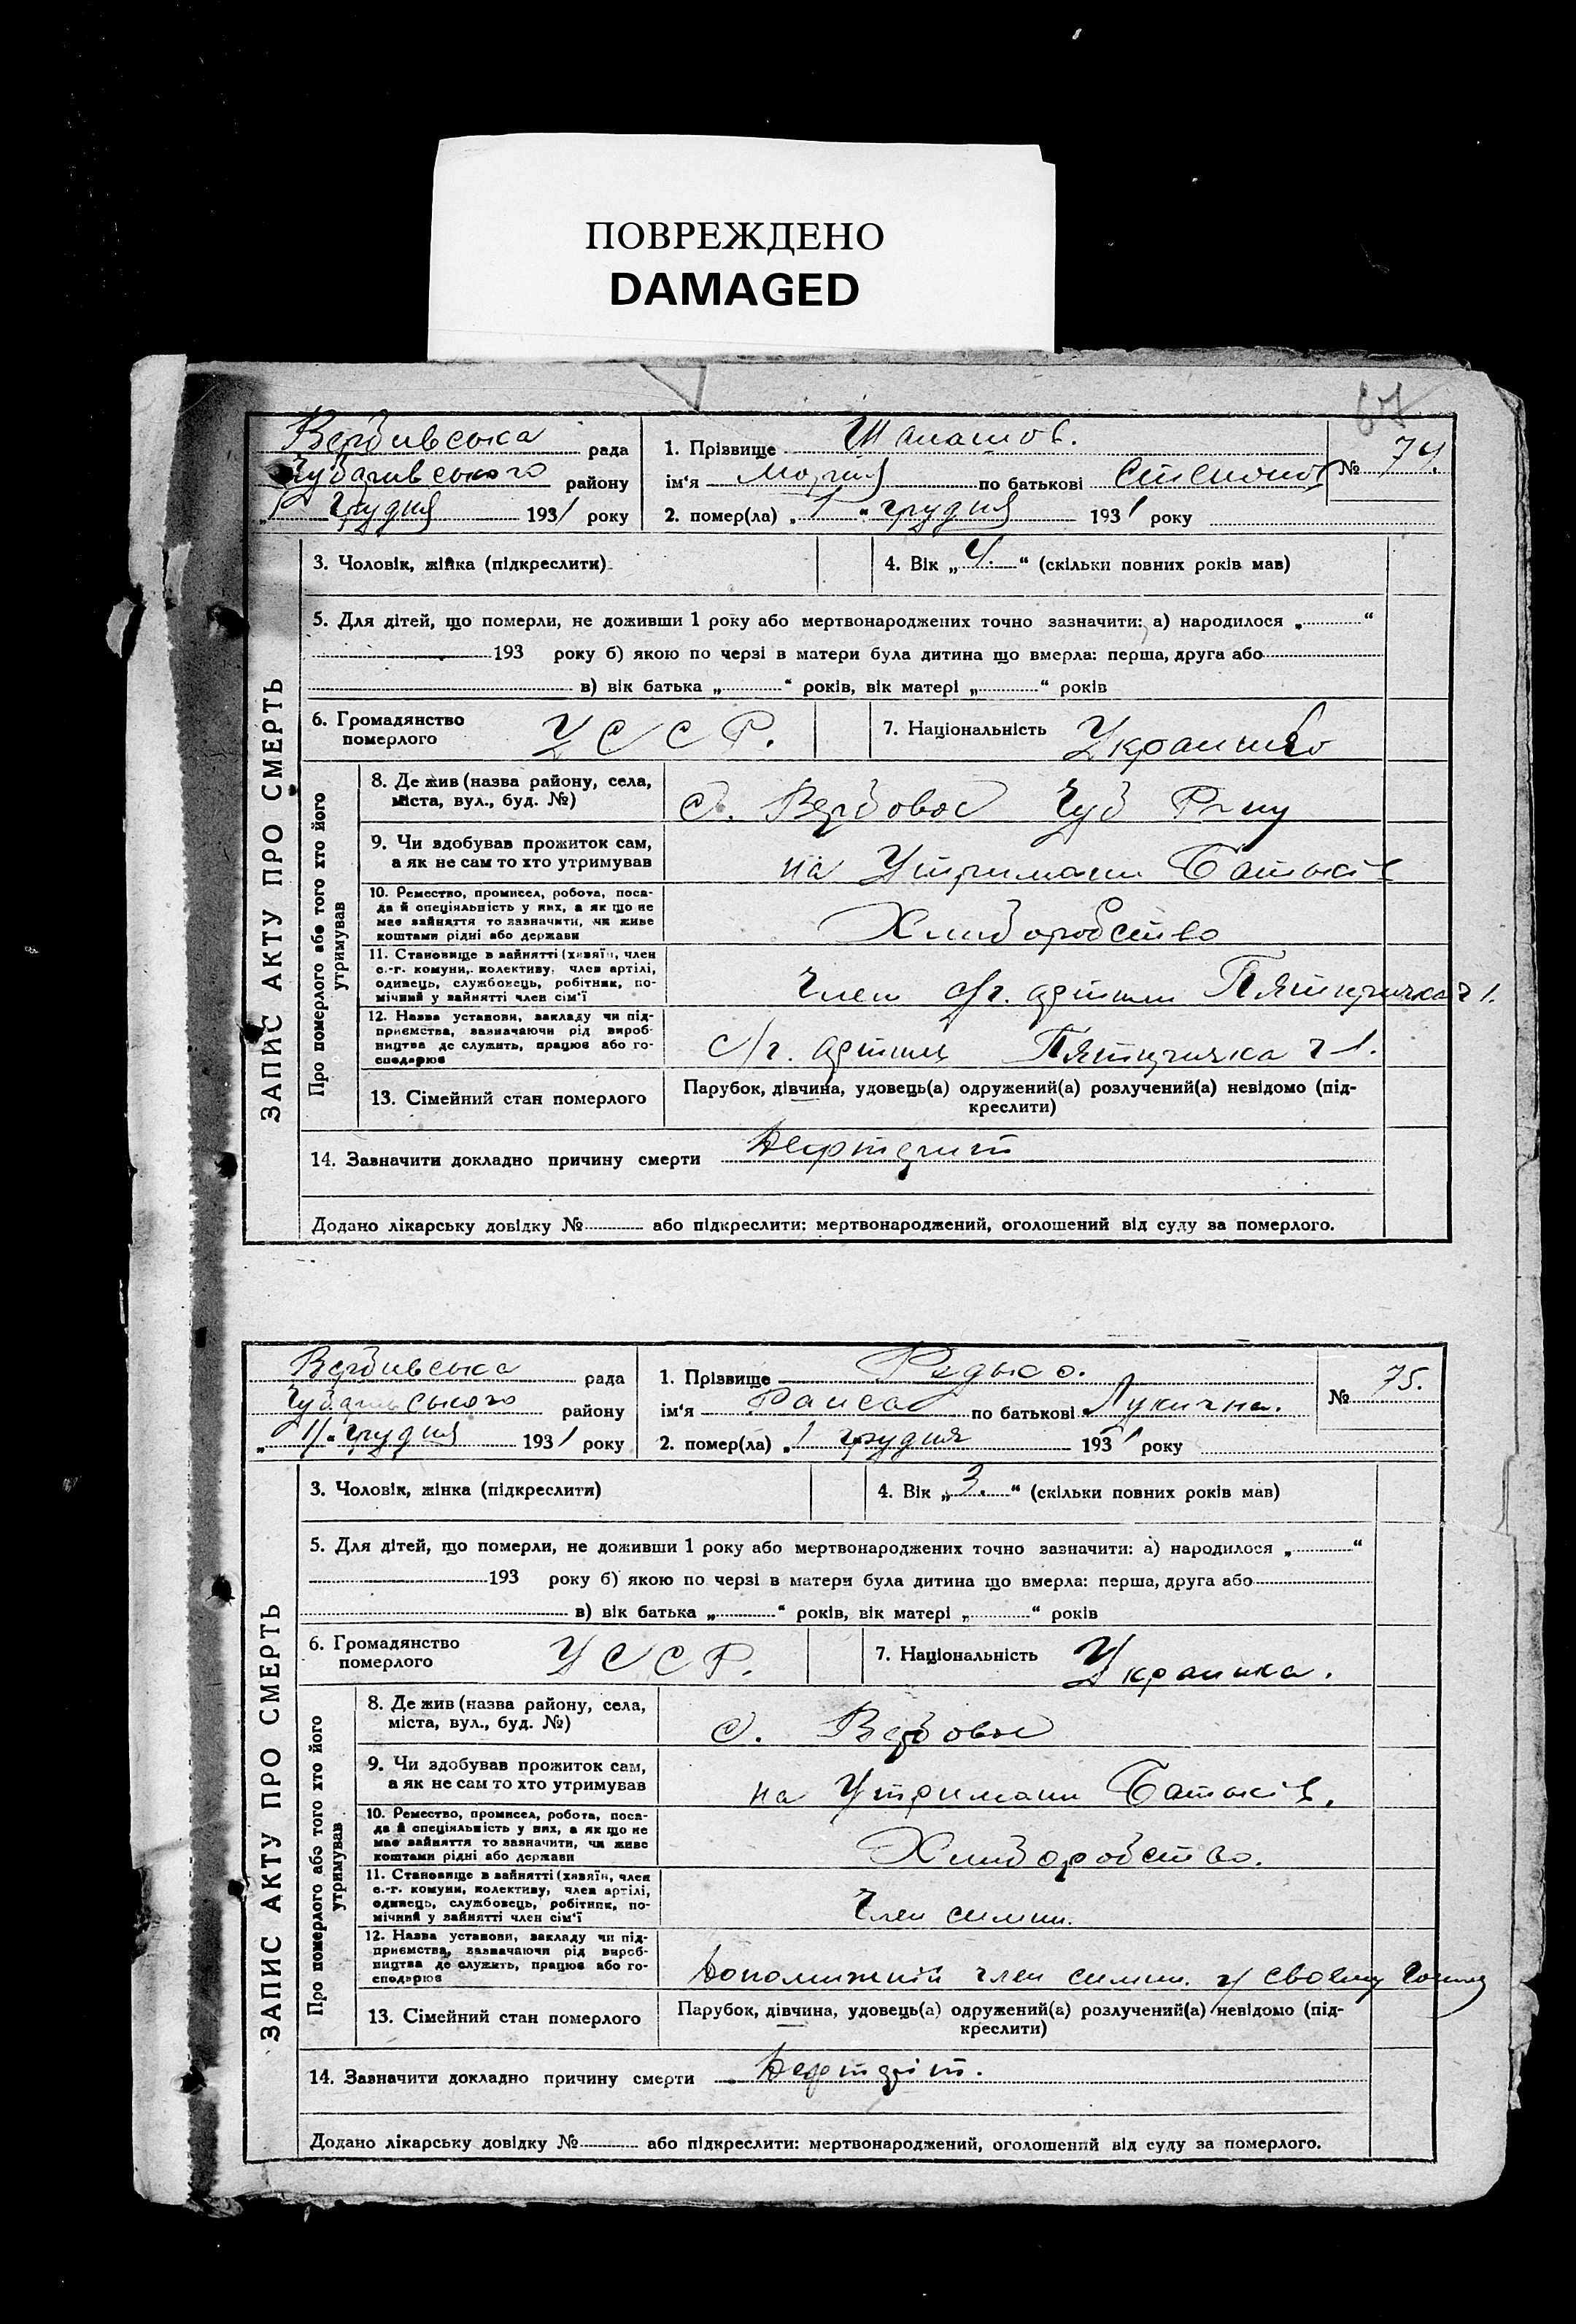 ПОВРЕЖДЕНО
DAMAGED
Вербивська рада
Чубаривського району
„1 Грудня 1931 року
1. Прізвище
ім'я Мария по батькові
№ 74.
2. помер(ла) „1“ грудня 1931 року
ЗАПИС АКТУ ПРО СМЕРТЬ
3. Чоловік, жінка (підкреслити)
4. Вік „4.“ (скільки повних років мав)
5. Для дітей, що померли, не доживши 1 року або мертвонароджених точно зазначити: а) народилося „ “
193 року б) якою по черзі в матери була дитина що вмерла: перша, друга або
в) вік батька „ “ років, вік матері „ “ років
6. Громадянство
померлого
УССР.
7. Національність
Про померлого або того хто його
утримував
8. Де жив (назва району, села,
міста, вул., буд. №)
с. Вербовое Чуб Р-ну
9. Чи здобував прожиток сам,
а як не сам то хто утримував
на Утримани Батьків
10. Ремество, промисел, робота, поса-
да й спеціяльність у них, а як що не
має зайняття то зазначити, чи живе
коштами рідні або держави
Хлиборобство
11. Становище в зайнятті (хазяїн, член
с.-г. комуни, колективу, член артілі,
одинець, службовець, робітник, по-
мічний у зайнятті член сім'ї
Член с/г. артили Пятиричка ч 1.
12. Назва установи, закладу чи під-
приємства, зазначаючи рід вироб-
ництва де служить, працює або го-
сподарює
с/г. артиль Пятиричка ч 1.
13. Сімейний стан померлого
Парубок, дівчина, удовець(а) одружений(а) розлучений(а) невідомо (під-
креслити)
14. Зазначити докладно причину смерти
Додано лікарську довідку № або підкреслити: мертвонароджений, оголошений від суду за померлого.
Вербивська рада
Чубаривського району
„1/“ грудня 1931 року
1. Прізвище Редько.
ім'я Раиса по батькові Лукична.
№ 75.
2. помер(ла) „1 грудня 1931 року
ЗАПИС АКТУ ПРО СМЕРТЬ
3. Чоловік, жінка (підкреслити)
4. Вік „3.“ (скільки повних років мав)
5. Для дітей, що померли, не доживши 1 року або мертвонароджених точно зазначити: а) народилося „ “
193 року б) якою по черзі в матери була дитина що вмерла: перша, друга або
в) вік батька „ “ років, вік матері „ “ років
6. Громадянство
померлого
УССР.
7. Національність Украинка.
Про померлого або того хто його
утримував
8. Де жив (назва району, села,
міста, вул., буд. №)
с. Вербовое
9. Чи здобував прожиток сам,
а як не сам то хто утримував
на Утримани Батьків.
10. Ремество, промисел, робота, поса-
да й спеціяльність у них, а як що не
має зайняття то зазначити, чи живе
коштами рідні або держави
Хлиборобство.
11. Становище в зайнятті (хазяїн, член
с.-г. комуни, колективу, член артілі,
одинець, службовець, робітник, по-
мічний у зайнятті член сім'ї
Член симьи.
12. Назва установи, закладу чи під-
приємства, зазначаючи рід вироб-
ництва де служить, працює або го-
сподарює
Допомижний член симьи. у своему
13. Сімейний стан померлого
Парубок, дівчина, удовець(а) одружений(а) розлучений(а) невідомо (під-
креслити)
14. Зазначити докладно причину смерти
Додано лікарську довідку № або підкреслити: мертвонароджений, оголошений від суду за померлого.